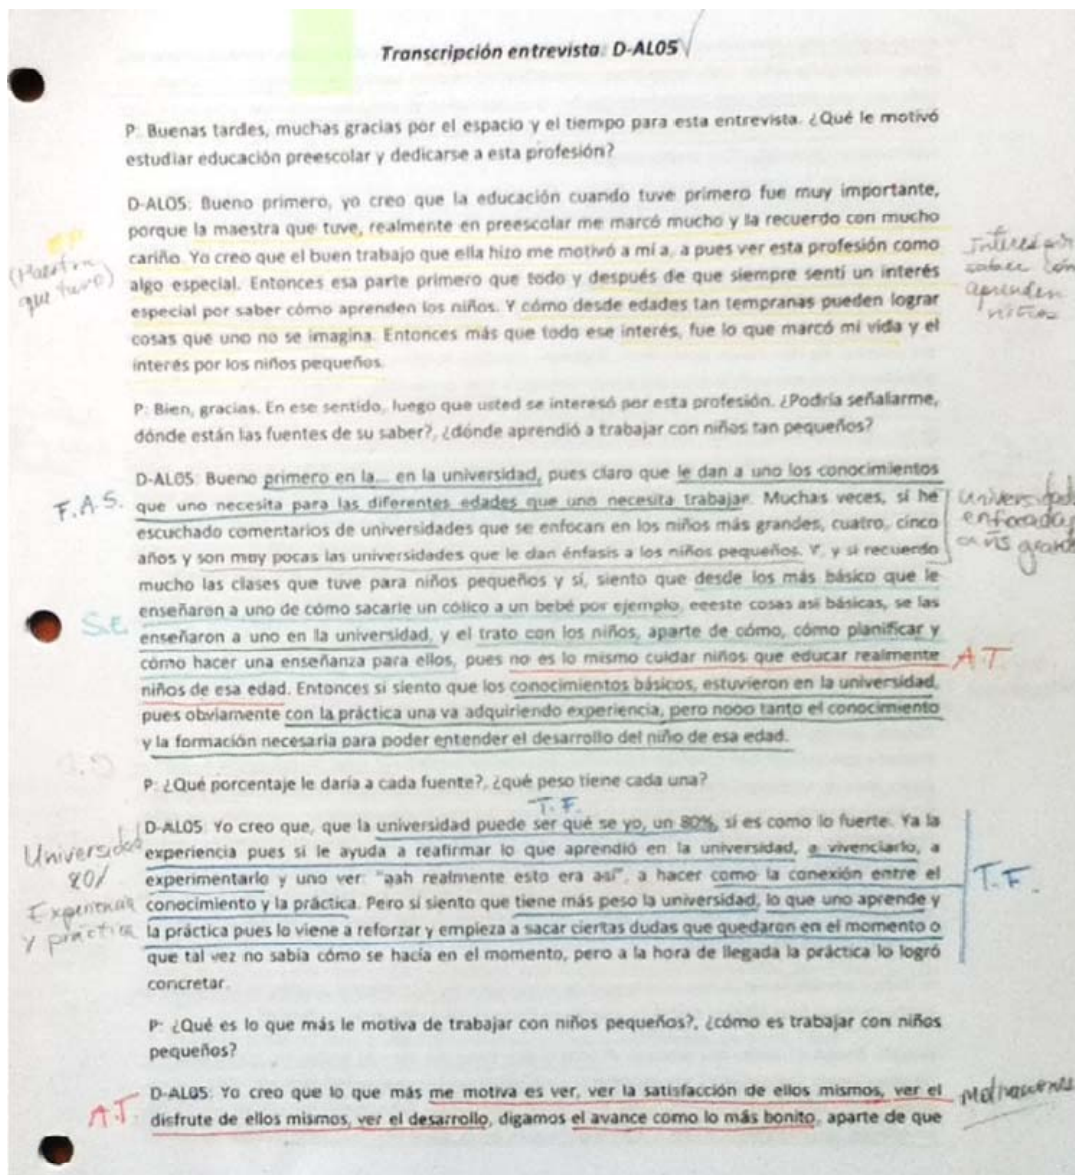 Transcripción entrevista: D-AL05
P: Buenas tardes, muchas gracias por el espacio y el tiempo para esta entrevista. ¿Qué le motivó
estudiar educación preescolar y dedicarse a esta profesión?
D-AL05: Bueno primero, yo creo que la educación cuando tuve primero fue muy importante,
porque la maestra que tuve, realmente en preescolar me marcó mucho y lla recuerdo con mucho
cariño. Yo creo que el buen trabajo que ella hizo me motivó a mí a, a pues ver esta profesión como
algo especial. Entonces esa parte primero que todo y después de que siempre sentí un interés
especial por saber cómo aprenden los niños. Y cómo desde edades tan tempranas pueden lograr
cosas que uno no se imagina. Entonces más que todo ese interés, fue lo que marcó mi vida y el
interés por los niños pequeños.
(Maestra
que tuvo)
Interés por
saber cómo
aprenden
niños
P: Bien, gracias. En ese sentido, luego que usted se interesó por esta profesión. ¿Podría señalarme,
dónde están las fuentes de su saber?, ¿dónde aprendió a trabajar con niños tan pequeños?
D-AL05: Bueno primero en la... en la universidad, pues claro que le dan a uno los conocimientos
que uno necesita para las diferentes edades que uno necesita trabajar. Muchas veces, sí he
escuchado comentarios de universidades que se enfocan en los niños más grandes, cuatro, cinco
años y son muy pocas las universidades que le dan énfasis a los niños pequeños. Y, y si recuerdo
mucho las clases que tuve para niños pequeños y sí, siento que desde los más básico que le
enseñaron a uno de cómo sacarle un cólico a un bebé por ejemplo, eeeste cosas así básicas, se las
enseñaron a uno en la universidad, y el trato con los niños, aparte de cómo, cómo planificar y
cómo hacer una enseñanza para ellos, pues no es lo mismo cuidar niños que educar realmente
niños de esa edad. Entonces si siento que los conocimientos básicos, estuvieron en la universidad,
pues obviamente con la práctica una va adquiriendo experiencia, pero nooo tanto el conocimiento
y la formación necesaria para poder entender el desarrollo del niño de esa edad.
F.A.S.
S.E.
Universidad
enfocada
grande
A.T.
P: ¿Qué porcentaje le daría a cada fuente?, ¿qué peso tiene cada una?
T.F.
D-AL05: Yo creo que, que la universidad puede ser qué se yo, un 80%, sí es como lo fuerte. Ya la
experiencia pues si le ayuda a reafirmar lo que aprendió en la universidad, a vivenciarlo, a
experimentarlo y uno ver: "aah realmente esto era así", a hacer como la conexión entre el
conocimiento y la práctica. Pero sí siento que tiene más peso la universidad, lo que uno aprende y
la práctica pues lo viene a reforzar y empieza a sacar ciertas dudas que quedaron en el momento o
que tal vez no sabía cómo se hacía en el momento, pero a la hora de llegada la práctica lo logró
concretar.
Universidad
80%
Experiencia
y práctica
T.F.
P: ¿Qué es lo que más le motiva de trabajar con niños pequeños?, ¿cómo es trabajar con niños
pequeños?
D-AL05: Yo creo que lo que más me motiva es ver, ver la satisfacción de ellos mismos, ver el
disfrute de ellos mismos, ver el desarrollo, digamos el avance como lo más bonito, aparte de que
A.T
Motivaciones